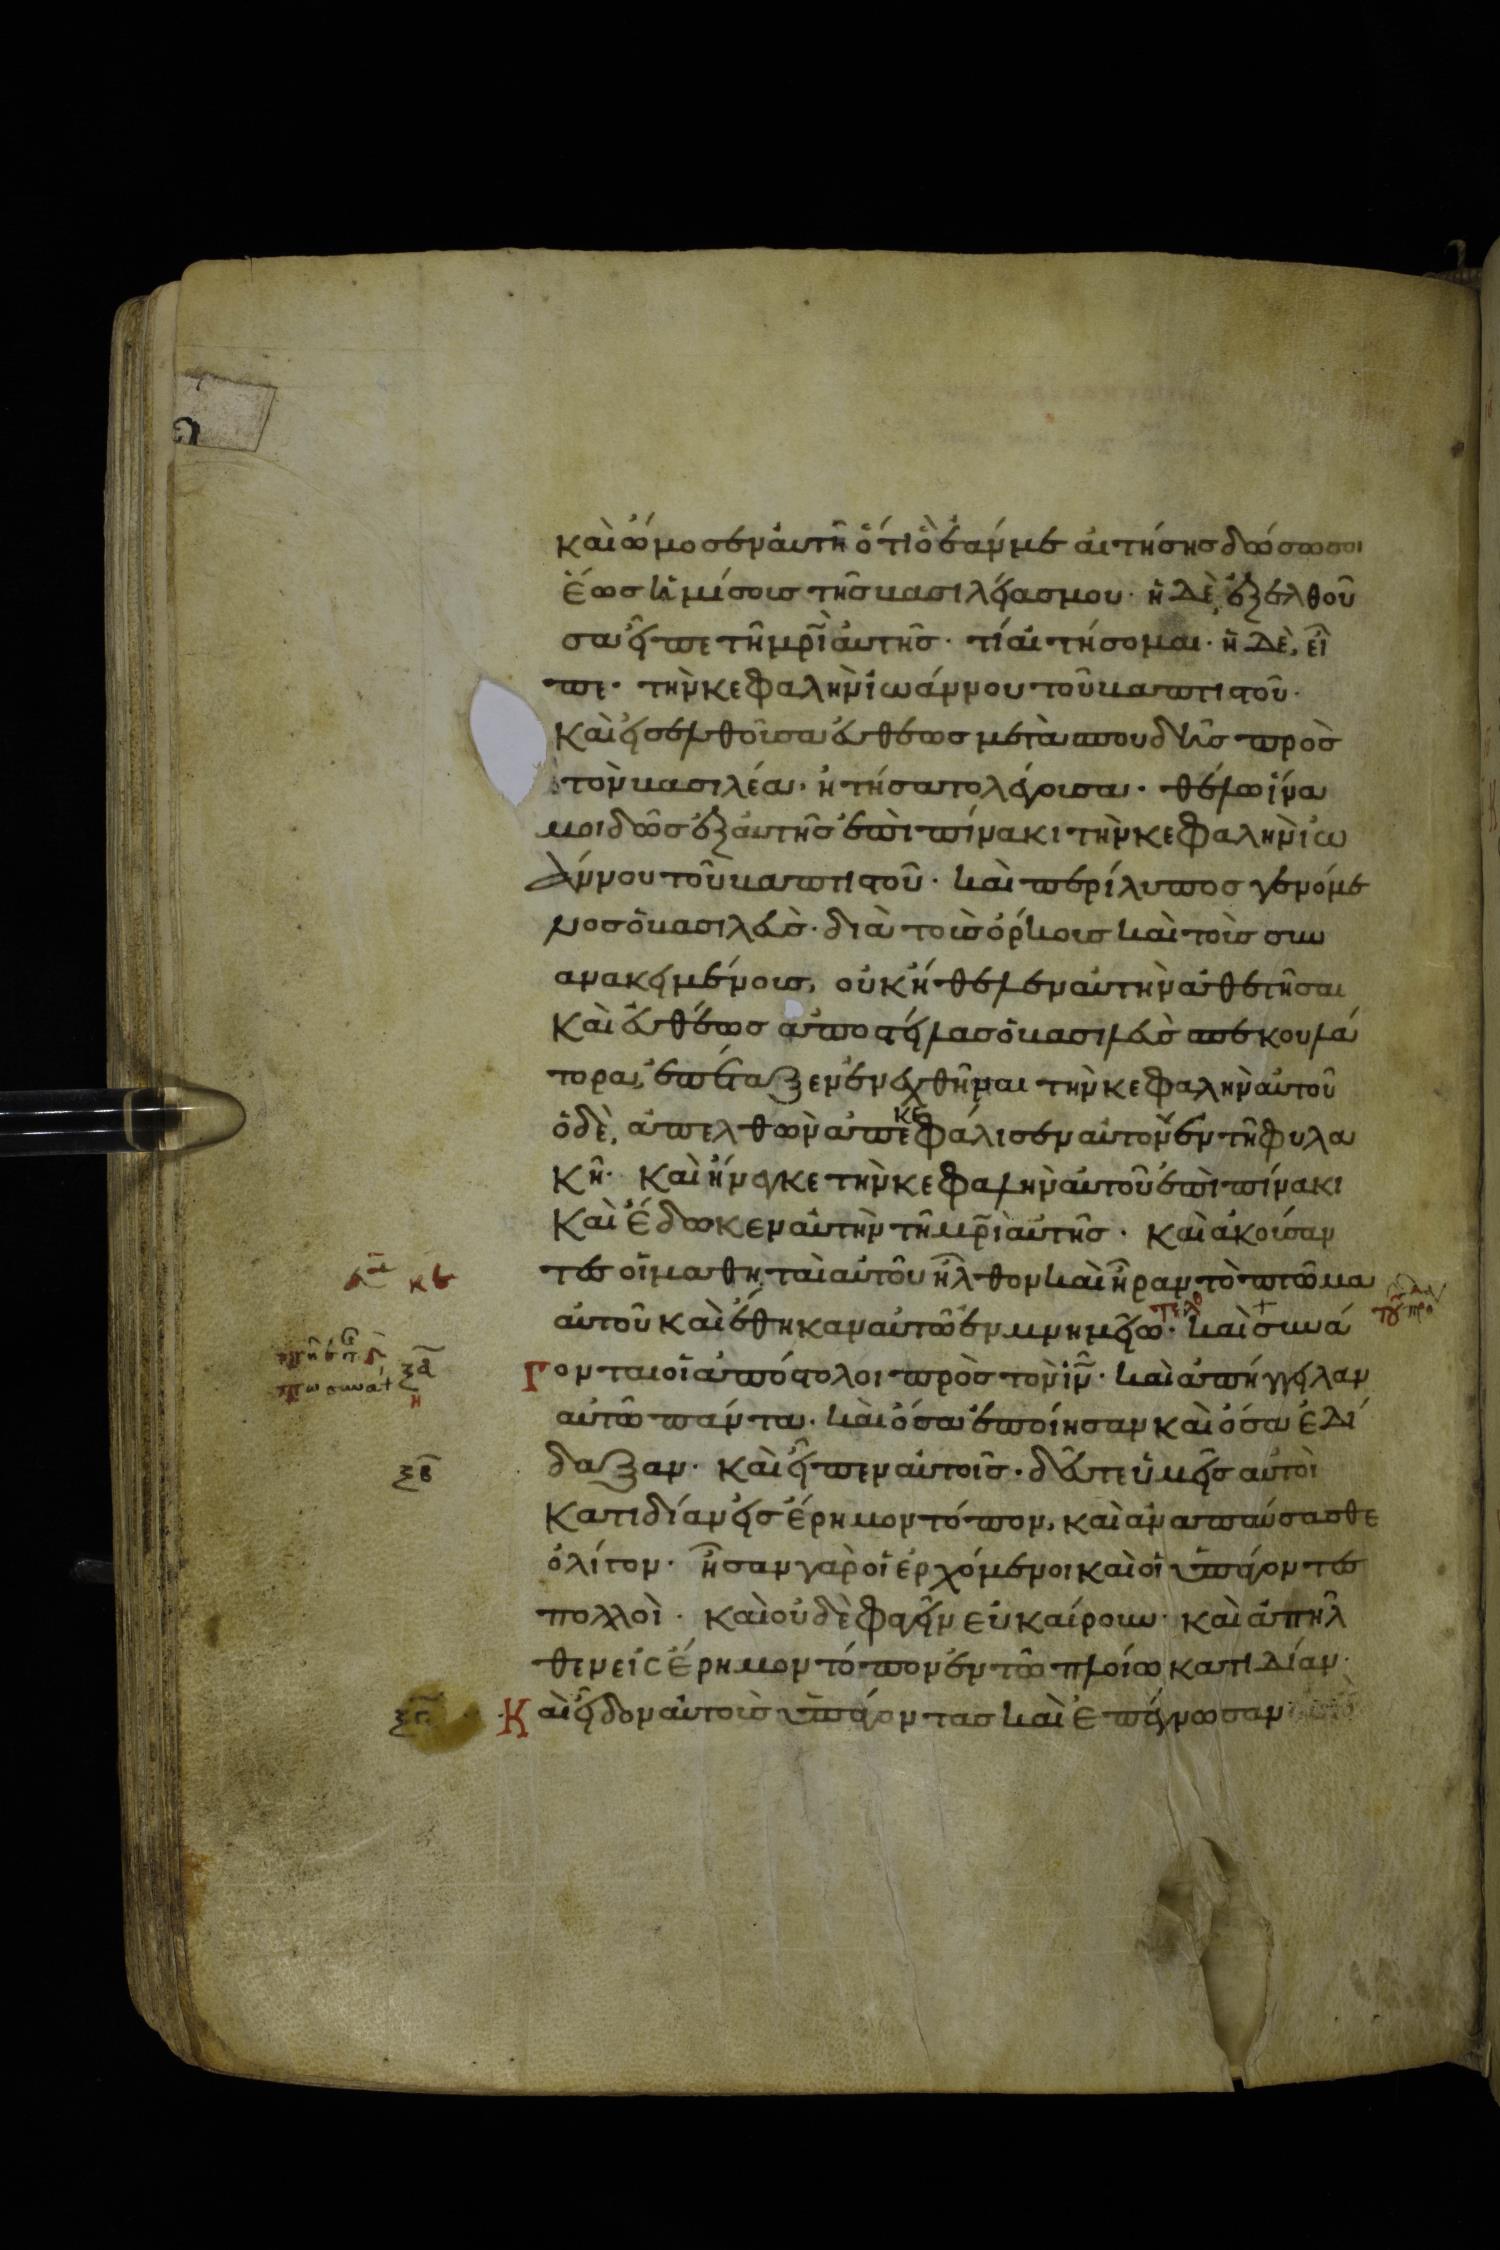 καὶ ὤμοσεν αὐτῆ ὅτι ὃ ἐάν με αἰτήσης δώσω σοι
ἕως ἡμίσους τῆς βασιλείας μου· ἡ δὲ ἐξελθοῦ
σα εἶπε τῆ μρῖ αὐτῆς· τί αἰτήσομαι· ἡ δὲ, εἶ
πε· τὴν κεφαλὴν ἰωάννου τοῦ βαπτιστοῦ·
Καὶ εἰσελθοῦσα εὐθέως μετὰ σπουδῆς πρὸς
τὸν βασιλέα· ἠτήσατο λέγουσα· θέλω ἵνα
μοι δῶς ἐξ αὐτῆς ἐπὶ πίνακι τὴν κεφαλὴν ἰω
άννου τοῦ βαπτιστοῦ· καὶ περίλυπος γενόμε
νος ὁ βασιλεὺς· διὰ τοὺς ὅρκους καὶ τοὺς συν
ανακειμένους, οὐκ ἠθέλεν αὐτὴν ἀθετῆσαι
Καὶ εὐθέως ἀποστείλας ὁ βασιλεὺς σπεκουλά
τορα, ἐπέταξεν ἐνεχθῆναι τὴν κεφαλὴν αὐτοῦ
ὁ δὲ, ἀπελθὼν ἀπεκεφάλισεν αὐτὸν ἐν τῆ φυλα
κῆ· καὶ ἤνεγκε τὴν κεφαλὴν αὐτοῦ ἐπὶ πίνακι
Καὶ ἔδωκεν αὐτὴν τῆ μρῖ αὐτῆς· καὶ ἀκούσαν
τες οἱ μαθηταὶ αὐτοῦ ἦλθον καὶ ἦραν τὸ πτῶμα
αὐτοῦ καὶ ἔθηκαν αὐτῶ ἐν μνημείω· τελ καὶ συνά
Γονται οἱ ἀπόστολοι πρὸς τὸν ἰν· καὶ ἀπήγγειλαν
αὐτῶ πάντα· καὶ ὅσα ἐποίησαν καὶ ὅσα ἐδί
δαξαν· καὶ εἶπεν αὐτοῖς· δεῦτε ὑμεῖς αὐτοὶ
Κατιδίαν εἰς ἔρημον τόπον, καὶ ἀναπαύσασθε
ὀλίγον· ἦσαν γὰρ οἱ ἐρχόμενοι καὶ οἱ ὑπάγοντες
πολλοὶ· καὶ οὐδὲ φαγεῖν εὐκαίρουν· καὶ ἀπῆλ
θεν εἰς ἔρημον τόπον ἐν τῶ πλοίω κατιδίαν·
Καὶ εἶδον αὐτοὺς ὑπάγοντας καὶ ἐπέγνωσαν
κε
ξα
η
ξβ